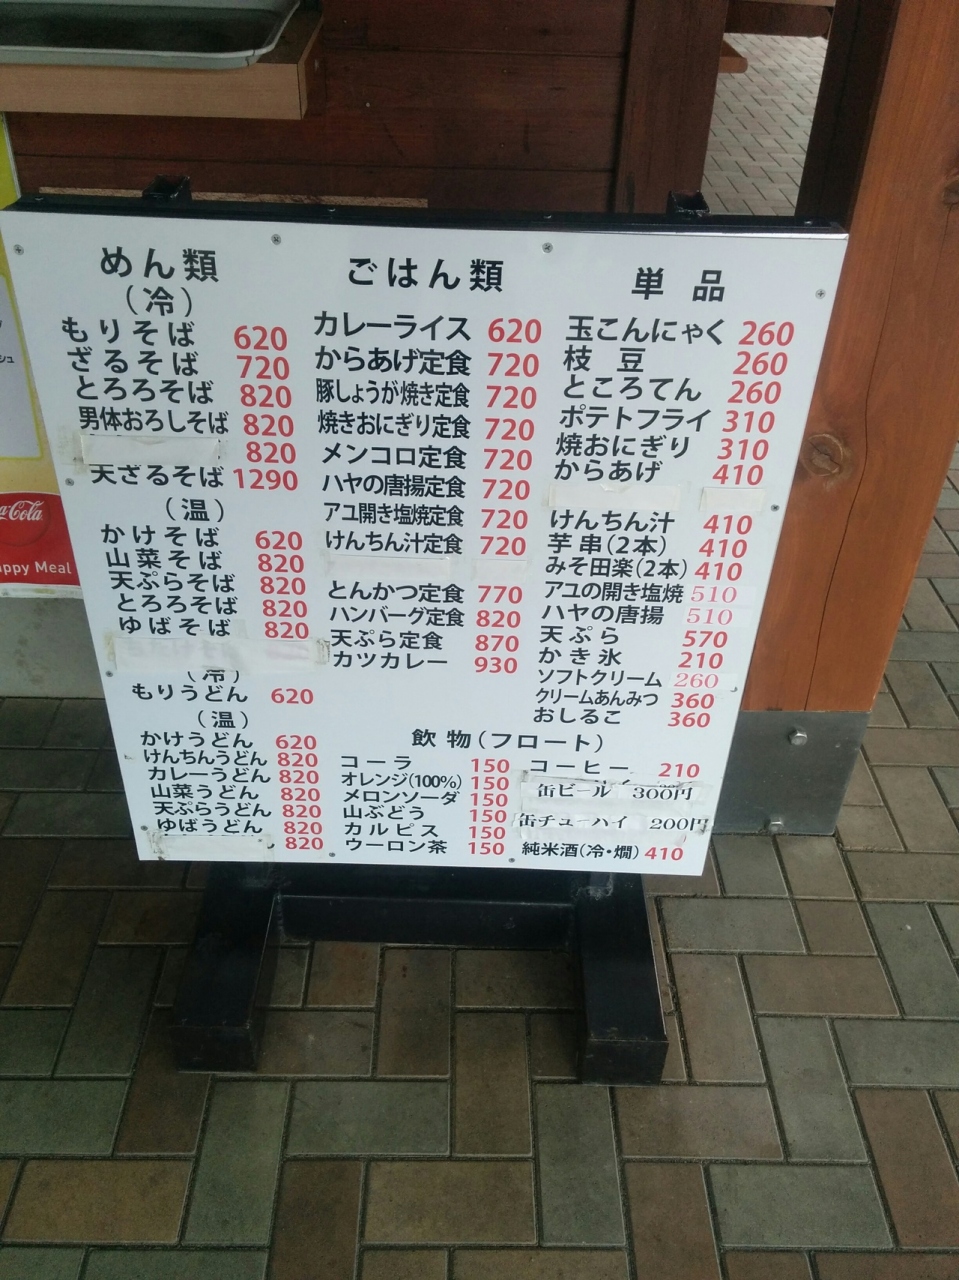 めん類
（冷）
もりそば 620
ざるそば 720
とろろそば 820
男体おろしそば 820
820
天ざるそば 1290
（温）
かけそば 620
山菜そば 820
天ぷらそば 820
とろろそば 820
ゆばそば 820
（冷）
もりうどん 620
（温）
かけうどん 620
けんちんうどん 820
カレーうどん 820
山菜うどん 820
天ぷらうどん 820
ゆばうどん 820
820
ごはん類
カレーライス 620
からあげ定食 720
豚しょうが焼き定食 720
焼きおにぎり定食 720
メンコロ定食 720
ハヤの唐揚定食 720
アユ開き塩焼定食 720
けんちん汁定食 720
とんかつ定食 770
ハンバーグ定食 820
天ぷら定食 870
カツカレー 930
単品
玉こんにゃく 260
枝豆 260
ところてん 260
ポテトフライ 310
焼おにぎり 310
からあげ 410
けんちん汁 410
芋串（2本） 410
みそ田楽（2本） 410
アユの開き塩焼 510
ハヤの唐揚 510
天ぷら 570
かき氷 210
ソフトクリーム 260
クリームあんみつ 360
おしるこ 360
飲物（フロート）
コーラ 150
オレンジ（100%） 150
メロンソーダ 150
山ぶどう 150
カルピス 150
ウーロン茶 150
コーヒー 210
缶ビール 300円
缶チューハイ 200円
純米酒（冷・燗） 410
Coca-Cola
appy Meal